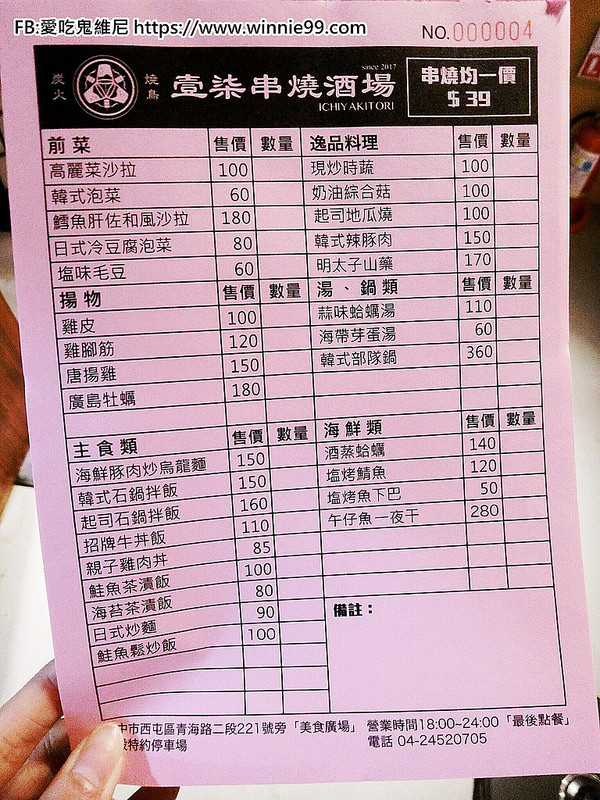 FB:愛吃鬼維尼 https://www.winnie99.com
NO.000004
炭火 燒鳥 壹柒串燒酒場 since 2017 ICHIYAKITORI
串燒均一價
$39
前菜 售價 數量
高麗菜沙拉 100
韓式泡菜 60
鱈魚肝佐和風沙拉 180
日式冷豆腐泡菜 80
塩味毛豆 60
揚物 售價 數量
雞皮 100
雞腳筋 120
唐揚雞 150
廣島牡蠣 180
主食類 售價 數量
海鮮豚肉炒烏龍麵 150
韓式石鍋拌飯 150
起司石鍋拌飯 160
招牌牛丼飯 110
親子雞肉丼 85
鮭魚茶漬飯 100
海苔茶漬飯 80
日式炒麵 90
鮭魚鬆炒飯 100
逸品料理 售價 數量
現炒時蔬 100
奶油綜合菇 100
起司地瓜燒 100
韓式辣豚肉 150
明太子山藥 170
湯、鍋類 售價 數量
蒜味蛤蠣湯 110
海帶芽蛋湯 60
韓式部隊鍋 360
海鮮類 售價 數量
酒蒸蛤蠣 140
塩烤鯖魚 120
塩烤魚下巴 50
午仔魚一夜干 280
備註：
中市西屯區青海路二段221號旁「美食廣場」 營業時間18:00~24:00「最後點餐」
特約停車場 電話 04-24520705